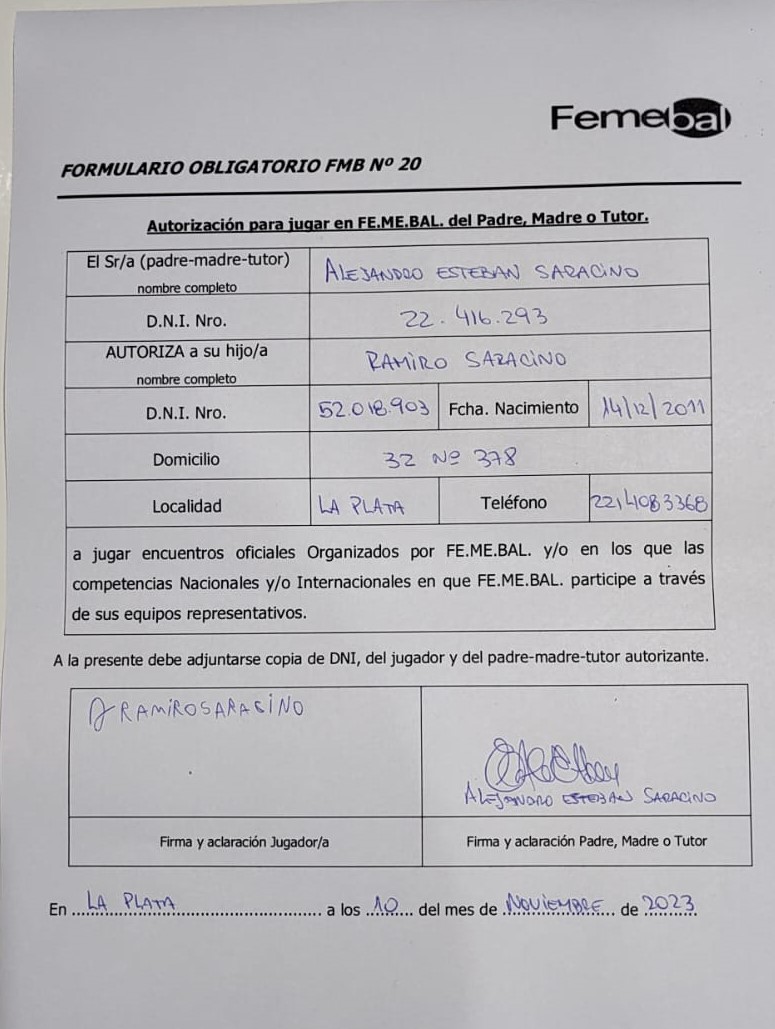 Femebal
FORMULARIO OBLIGATORIO FMB Nº 20
Autorización para jugar en FE.ME.BAL. del Padre, Madre o Tutor.
El Sr/a (padre-madre-tutor)
nombre completo
ALEJANDRO ESTEBAN SARACINO
D.N.I. Nro.
22.416.293
AUTORIZA a su hijo/a
nombre completo
RAMIRO SARACINO
D.N.I. Nro.
52.018.903
Fcha. Nacimiento
14/12/2011
Domicilio
32 Nº 378
Localidad
LA PLATA
Teléfono
2214083368
a jugar encuentros oficiales Organizados por FE.ME.BAL. y/o en los que las
competencias Nacionales y/o Internacionales en que FE.ME.BAL. participe a través
de sus equipos representativos.
A la presente debe adjuntarse copia de DNI, del jugador y del padre-madre-tutor autorizante.
RAMIRO SARACINO
ALEJANDRO ESTEBAN SARACINO
Firma y aclaración Jugador/a
Firma y aclaración Padre, Madre o Tutor
En LA PLATA a los 10 del mes de NOVIEMBRE de 2023